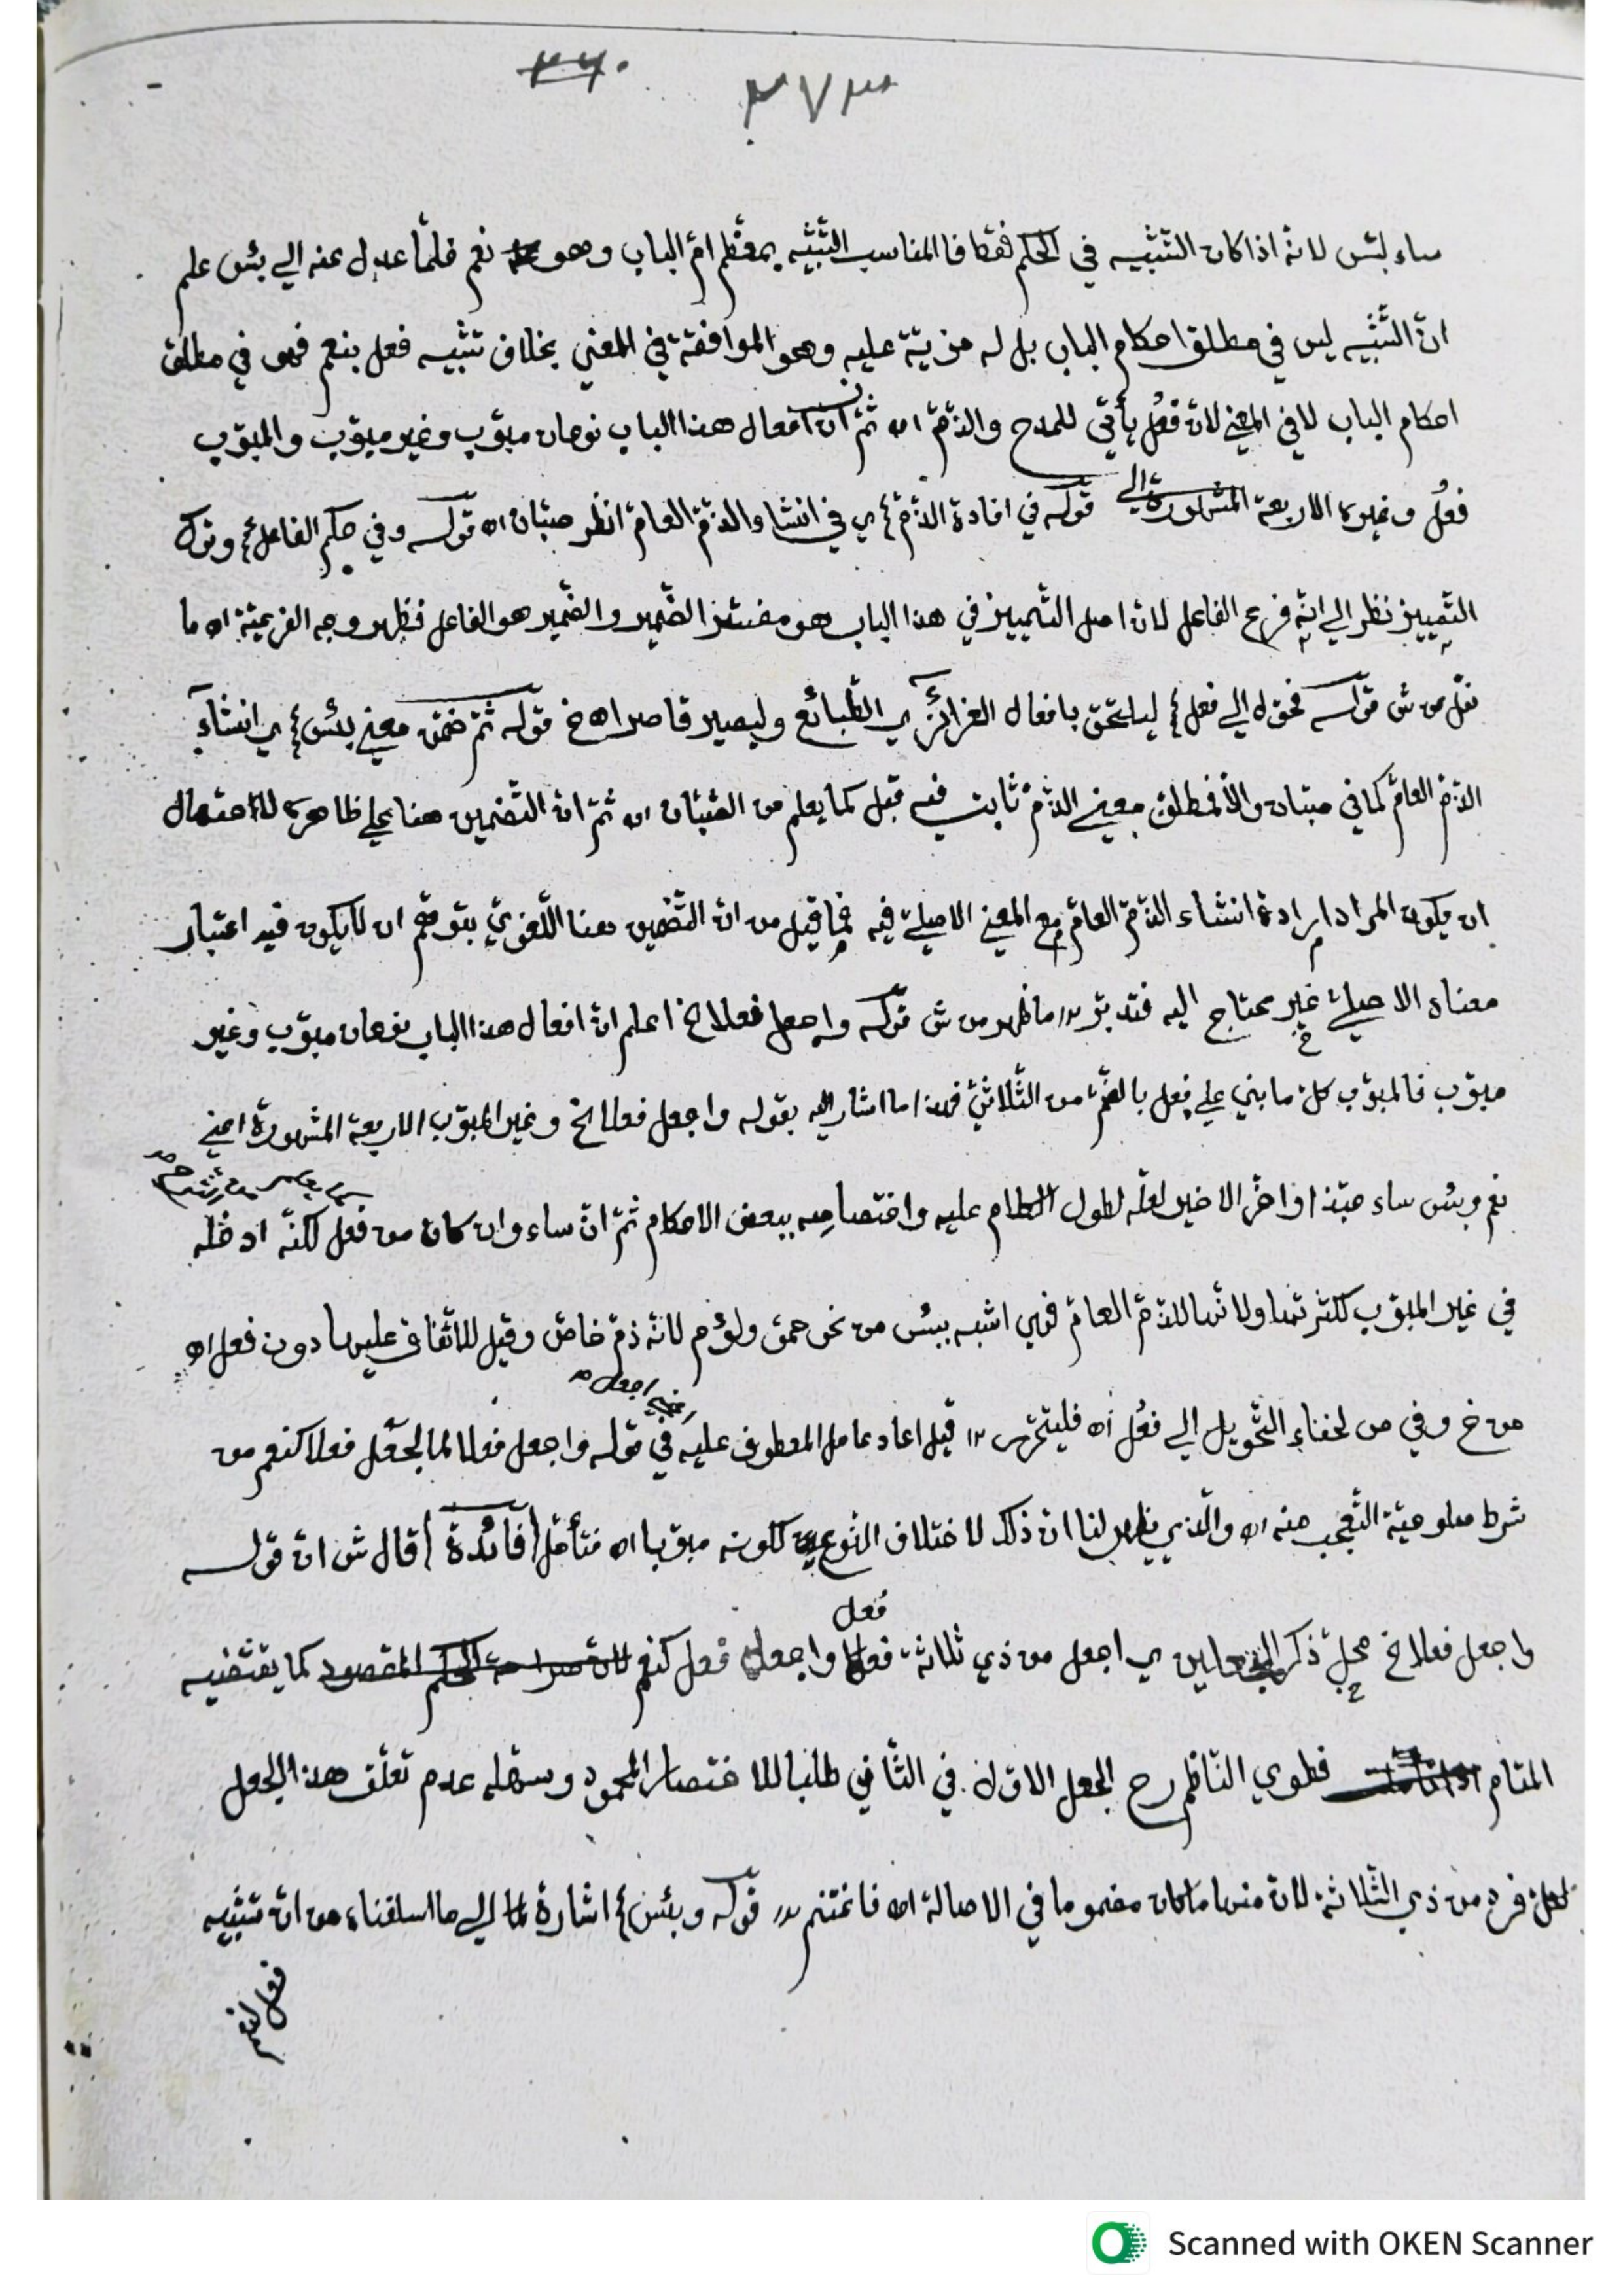 ٣٦٠
٣٧٣
ساء لبئس لانه اذا كان التشبيه في الحكم فقط فالمناسب التشبيه بمعظم امّ الباب وهو نعم فلمّا عدل عنه الي بئس علم
انّ التشبيه ليس في مطلق احكام الباب بل له مزيّة عليه وهو الموافقة في المعني بخلاف تشبيه فعل بنعم فهو في مطلق
احكام الباب لا في المعني لانّ فعُل يأتي للمدح والذّمّ اه ثمّ انّ افعال هذا الباب نوعان مبوّب وغير مبوّب والمبوّب
فعُل وغيره الاربعة المشهورة الي قوله في افادة الذّمّ ؛ي في انشاء الذّمّ العامّ انظر صبّان اه قوله وفي حكم الفاعل ؛ وترك
التّمييز نظر الي انّه فرع الفاعل لانّ اصل التّمييز في هذا الباب هو مفسّر الضّمير والضّمير هو الفاعل فظهر وجه الفرعيّة اه ما
نقل من ش قوله فحوّل الي فعل ؛ ليلتحق بافعال الغرائز ؛ي الطّبائع وليصير قاصرا اه خ قوله ثمّ ضمّن معني بئس ؛ي انشاء
الذّمّ العامّ كما في صبّان والّا فمطلق معني الذّمّ ثابت فيه قبل كما يعلم من الصّبّان اه ثمّ انّ التّضمين هنا علي ظاهره لاحتمال
ان يكون المراد ارادة انشاء الذّمّ العامّ مع المعني الاصليّ فيه فما قيل من انّ التّضمين هنا اللّغويّ بتوهّم ان لا يكون فيه اعتبار
معناه الاصليّ غير محتاج اليه فتدبّر ما ظهر من ش قوله واجعل فعلا خ اعلم انّ افعال هذا الباب نوعان مبوّب وغير
مبوّب فالمبوّب كلّ ما بني علي فعل بالضّمّ من الثّلاثيّ فهذا ما اشار اليه بقوله واجعل فعلا الخ وغير المبوّب الاربعة المشهورة اعني
كما يعلم من شرح
نعم وبئس ساء حبّذا واخّر الاخير لعلّه لطول الكلام عليه واختصاصه ببعض الاحكام ثمّ انّ ساء وان كان من فعل لكنّه ادخله
في غير المبوّب لكثرتها ولانّها للذّمّ العامّ فهي اشبه ببئس من نحو حمق ولؤم لانّه ذمّ خاصّ وقيل للاتّفاق عليها دون فعل اه
اعني اجعل
من خ وفي ص لخفاء التّحويل الي فعُل اه فليتحرّر قيل اعاد عامل المعطوف عليه في قوله واجعل فعلا لما لجعل فعلا كنعم من
شرط صلوحيّة التّعجّب منه اه والّذي يظهر لنا انّ ذلك لاختلاف النّوعين لكونه مبوّبا اه فتأمّل (فائدة) قال ش انّ قوله
فعل
واجعل فعلا خ محلّ ذكر الجعلين ؛ي اجعل من ذي ثلاثة فعلا واجعل فعل كنعم لانّ صراحة الحكم المقصود كما يقتضيه
المقام فطوي النّاظم رح الجعل الاوّل في الثّاني طلبا للاختصار المحمود وسهّله عدم تعلّق هذا الجعل
لكلّ فرد من ذي الثّلاثة لانّ منها ما كان مضموما في الاصالة اه فاغتنم قوله وبئس ؛ اشارة الي ما اسلفناه من انّ تشبيه
فعل بنعم
Scanned with OKEN Scanner